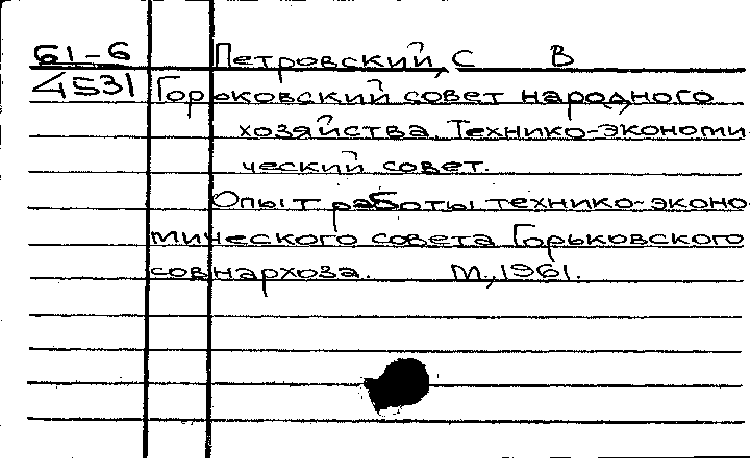 61-6 Петровский, С В
4531 Горьковский совет народного
хозяйства. Технико-экономи
ческий совет.
Опыт работы технико-эконо-
мического совета Горьковского
совнархоза. М., 1961.